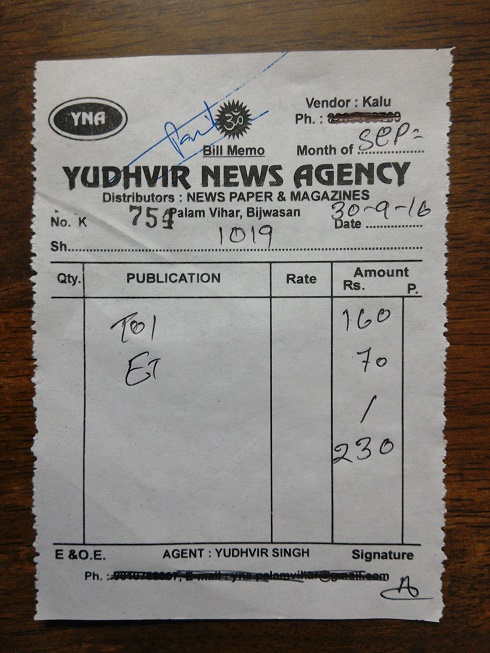 YNA
Paid
30
Vendor : Kalu
Ph. :
Bill Memo
Month of Sep=
YUDHVIR NEWS AGENCY
Distributors : NEWS PAPER & MAGAZINES
No. K 754 Palam Vihar, Bijwasan Date 30-9-16
Sh. 1019
Qty. PUBLICATION Rate Amount
Rs. P.
TOI 160
ET 70
/
230
E &O.E. AGENT : YUDHVIR SINGH Signature
Ph. : E-mail : yna.palamvihar@gmail.com